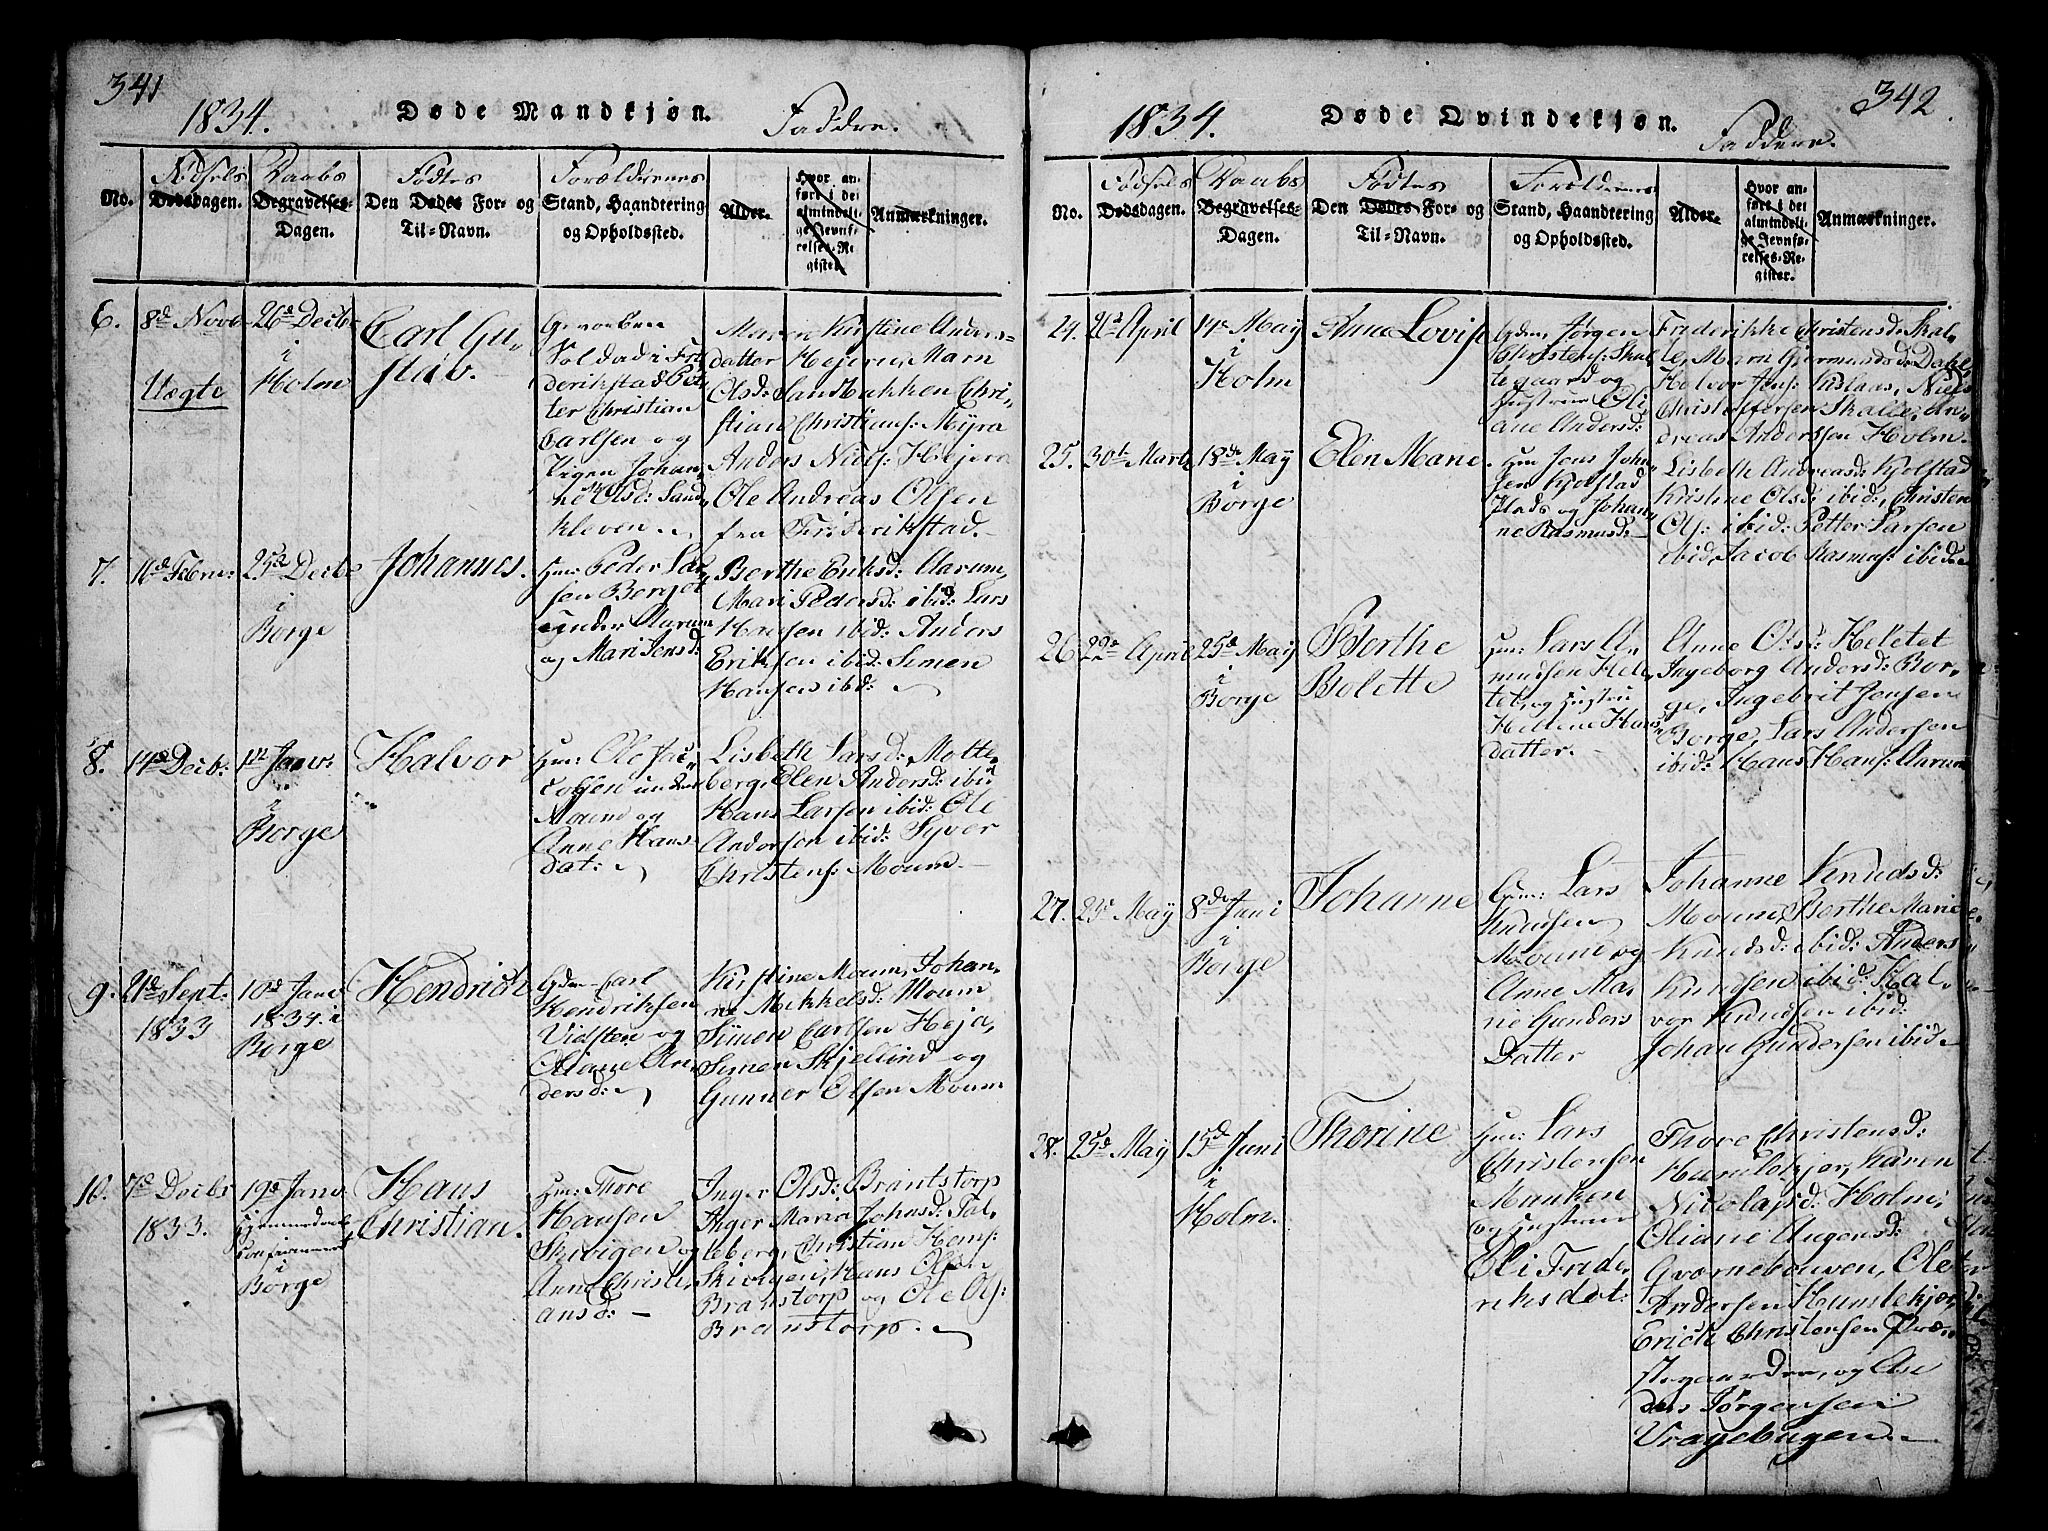 341
1834.
Døde Mandkjøn.
Faddere.
No.
Fødsels
Dødsdagen.
Daabs
Begravelses-
Dagen.
Fødtes
Den Dødes For- og
Til-Navn.
Forældrenes
Stand, Haandtering
og Opholdssted.
Alder.
Hvor an-
ført i det
almindeli-
ge Jevnfø-
relses-Re-
gister.
Anmærkninger.
6.
8d Novb
Uægte
26d Decbr
i
Holm
Carl Gu-
stav.
Gevorben
Soldad i Fri-
derikstad Pet-
ter Christian
Carlsen og
Pigen Johan-
ne Olsd: Sand-
kleven.
Maren Kirstine Anders-
datter Hejern, Marn
Olsd: Sandbakken Chri-
stian Christians: Myra
Anders Niels: Hejera
Ole Andreas Olsen
fra Friderikstad.
7.
11d Febru:
25d Decbr
i
Borge
Johannes.
Hm: Peder Lar-
sen Berget
under Aarum
og Mari Jensd:
Berthe Eriksd: Aarum,
Mari Pedersd: ibid: Lars
Hansen ibid: Anders
Eriksen ibid: Simen
Hansen ibid:
8.
14d Decb:
1st Janv:
i
Borge
Halvor
Hm: Ole Jac-
cobsen under
Moum og
Anne Hans
dat:
Lisbeth Larsd: Molte-
berg, Elen Andersd: ibid
Hans Larsen ibid: Ole
Andersen ibid: Syver
Christens: Moum.
9.
21d Sept:
1833
10d Janv
1834 i
Borge
Hendrich
Gdm: Carl
Hendriksen
Vidsten og
Oliane An-
dersd:
Kirstine Moum, Johan-
ne Mikkelsd: Moum
Simen Carlsen Heja,
Simen Skjellind og
Gunner Olsen Moum
10.
7d Decbr
1833.
19d Janv
hjemmedøbt
confirmeret
i
Borge
Hans
Christian.
Hm: Thore
Hansen
Skivigen og
Anne Christi-
ansd:
Inger Olsd: Brantstorp
Inger Maria Johnsd: Tal-
leberg, Christian Hans:
Skivigen, Hans Olsen
Branstorp og Ole Ols:
Branstorp.
342
1834.
Døde Qvindekjøn.
Faddere.
No.
Fødsels
Dødsdagen.
Daabs
Begravelses-
Dagen.
Fødtes
Den Dødes For- og
Til-Navn.
Forældrenes
Stand, Haandtering
og Opholdssted.
Alder.
Hvor an-
ført i det
almindeli-
ge Jevnfø-
relses-Re-
gister.
Anmærkninger.
24.
26d April
14d May
i
Holm
Anne Lovise
Gdm: Jørgen
Christens: Skal-
legaard og
Hustrue Oli-
ane Andersd:
Friderikke Christensd: Skal-
le, Marn Gjermundsd: Dahle
Helvor Jens: Niels
Christoffersen Skalle, An-
dreas Anderssen Holm.
25.
30t Marts
18de May
i
Borge
Elen Marie
Hm: Jens John-
sen Kjølstad
Plads og Johan-
ne Rasmusd:
Lisbeth Andreasd: Kjølstad
Kristine Olsd: ibid: Christen
Ols: ibid: Petter Larsen
ibid, Jacob Rasmus: ibid
26
22de April
25d May
i
Borge
Berthe
Bolette
Hm: Lars A-
mundsen Hele-
tet, og Hustru
Hellene Hans-
datter.
Anne Olsd: Heletet
Ingeborg Andersd: Bor-
ge, Ingebrit Jensen
Borge, Lars Andersen
ibid: Hans Hans: Aarum
27.
23d May
8de Juni
i
Borge
Johanne
Gdm: Lars
Knudsen
Moum og
Anne Ma-
rie Gunders
Datter
Johanne Knudsd:
Moum, Berthe Marie
Knudsd: ibid: Anders
Knudsen ibid: Hal-
vor Knudsen ibid:
Johan Gundersen ibid
28.
25d May
15d Juni
i
Holm.
Thorine
Hm: Lars
Christensen
Munken
og Hustrue
Eli Fride-
riksdat:
Thore Christensd:
Humlekjer, Karen
Nicolajsd: Holm,
Oliane Augensd:
Gværnebouven, Ole
Andersen Humlekjer
Erich Christensen Præ-
stegaarden, og An-
ders Jørgensen
Vragebugen.